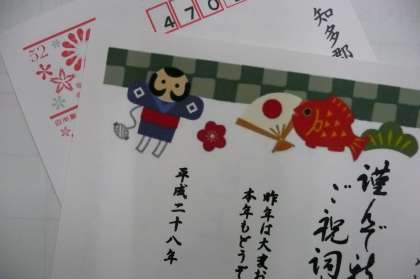 470
知多郡
52
謹んで新
ご祝詞
昨年は大変お
本年もどうぞ
平成二十八年